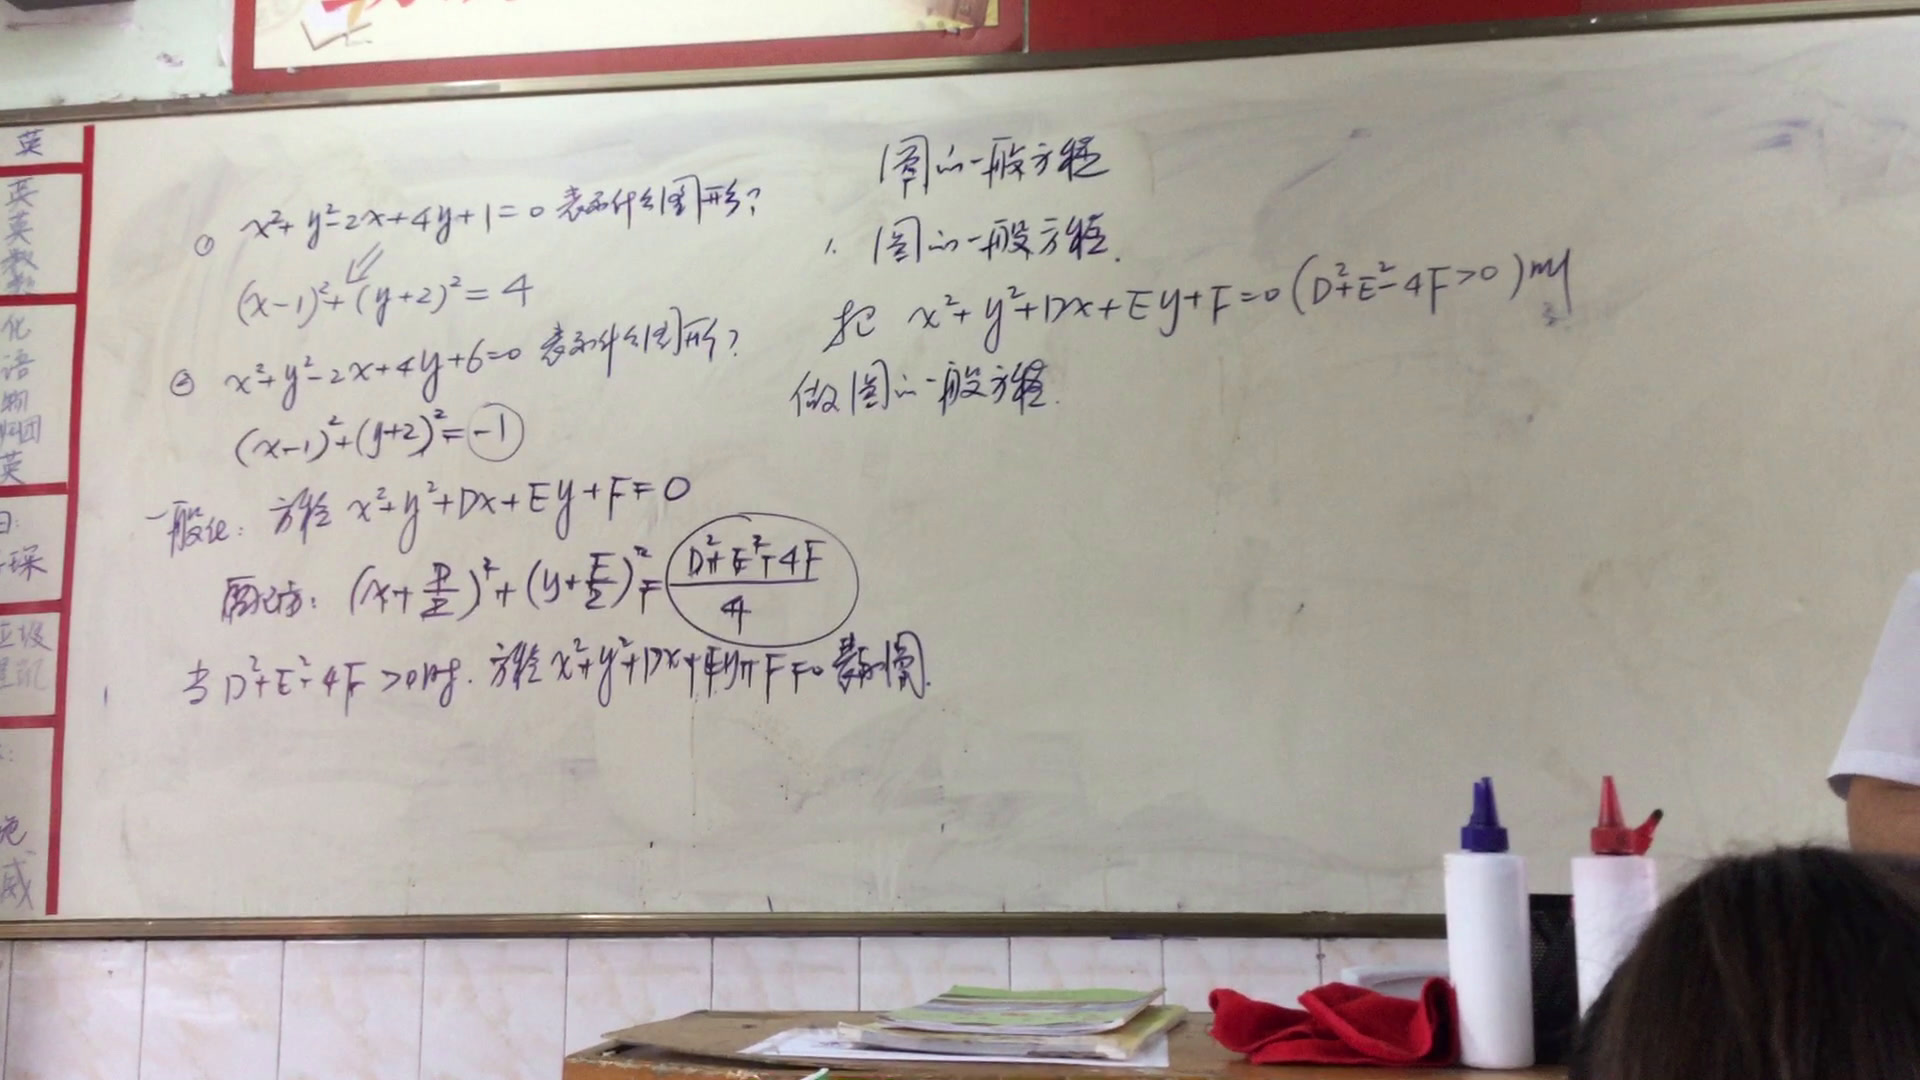 英
英
英
数
数
化
语
物
英
琛
威
① x²+y²-2x+4y+1=0 表示什么图形?
(x-1)²+(y+2)²=4
② x²+y²-2x+4y+6=0 表示什么图形?
(x-1)²+(y+2)²=-1
一般化: 方程 x²+y²+Dx+Ey+F=0
配方: (x+D/2)²+(y+E/2)²=(D²+E²-4F)/4
当D²+E²-4F>0时. 方程x²+y²+Dx+Ey+F=0表示圆.
圆的一般方程
1. 圆的一般方程.
把 x²+y²+Dx+Ey+F=0(D²+E²-4F>0)叫
做圆的一般方程.